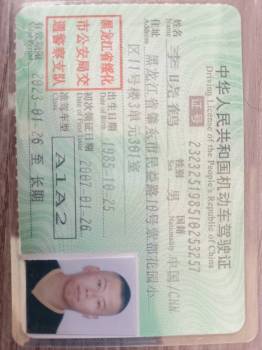 中华人民共和国机动车驾驶证
Driving License of the People's Republic of China
证号 232325198510253257
姓名
Name
性别 男
Sex
国籍 中国/CHN
Nationality
住址 黑龙江省肇东市民益路18号景都花园小
Address
区11号楼3单元301室
黑龙江省绥化
市公安局交
通警察支队
出生日期 1985-10-25
初次领证日期 2007-01-26
Date of First Issue
准驾车型 A1A2
Class
有效期限 2023-01-26 至 长期